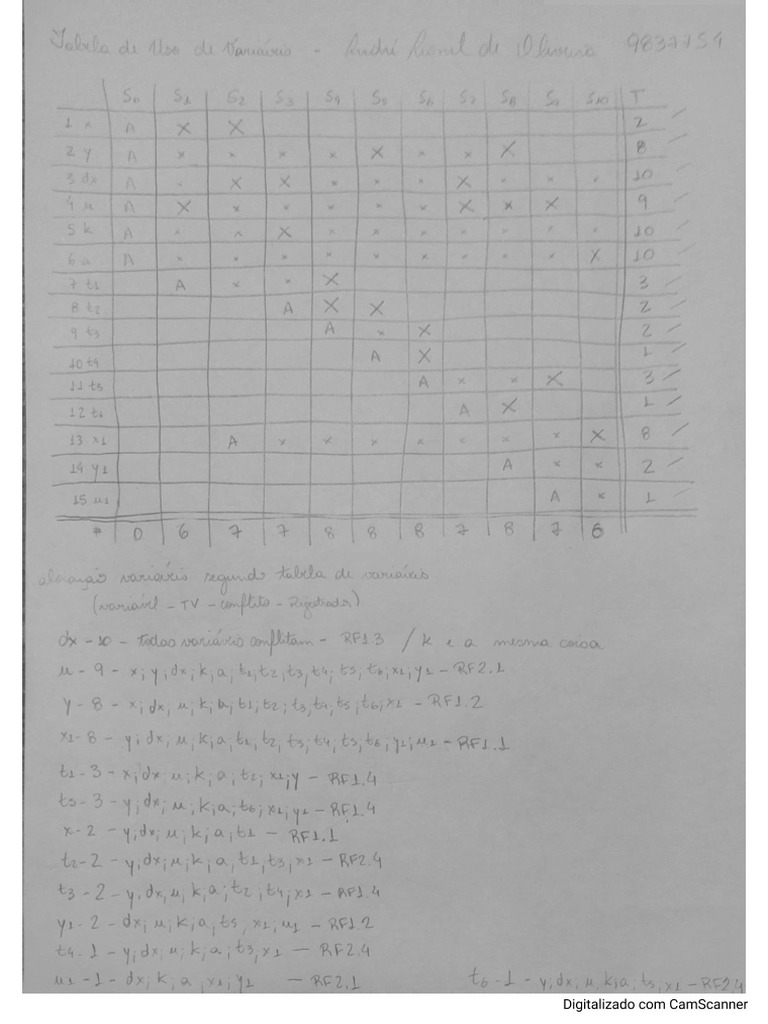 Tabela de Uso de Variáveis - André Lionel de Oliveira 9837754
S0 S1 S2 S3 S4 S5 S6 S7 S8 S9 S10 T
1 x A X X 2
2 y A x x x x X x x X 8
3 dx A x X X x x x X x x x 10
4 u A X x x x x x X x X 9
5 k A x x X x x x x x x x 10
6 a A x x x x x x x x x X 10
7 t1 A x x X 3
8 t2 A X X 2
9 t3 A x X 2
10 t4 A X 1
11 t5 A x x X 3
12 t6 A X 1
13 x1 A x x x x x x x X 8
14 y1 A x x 2
15 u1 A x 1
# 0 6 7 7 8 8 8 7 8 7 6
alocação variáveis segundo tabela de variáveis
(variável - TV - conflito - Registrador)
dx - 10 - todas variáveis conflitam - RF1.3 / k e a mesma coisa
u - 9 - x; y; dx; k; a; t1; t2; t3; t4; t5; t6; x1; y1 - RF2.1
y - 8 - x; dx; u; k; a; t1; t2; t3; t4; t5; t6; x1 - RF1.2
x1 - 8 - y; dx; u; k; a; t1; t2; t3; t4; t5; t6; y1; u1 - RF1.1
t1 - 3 - x; dx; u; k; a; t2; x1; y - RF1.4
t5 - 3 - y; dx; u; k; a; t6; x1; y1 - RF1.4
x - 2 - y; dx; u; k; a; t1 - RF1.1
t2 - 2 - y; dx; u; k; a; t1; t3; x1 - RF2.4
t3 - 2 - y; dx; u; k; a; t2; t4; x1 - RF1.4
y1 - 2 - dx; u; k; a; t5; x1; u1 - RF1.2
t4 - 1 - y; dx; u; k; a; t3; x1 - RF2.4
u1 - 1 - dx; k; a; x1; y1 - RF2.1
t6 - 1 - y; dx; u; k; a; t5; x1 - RF2.4
Digitalizado com CamScanner